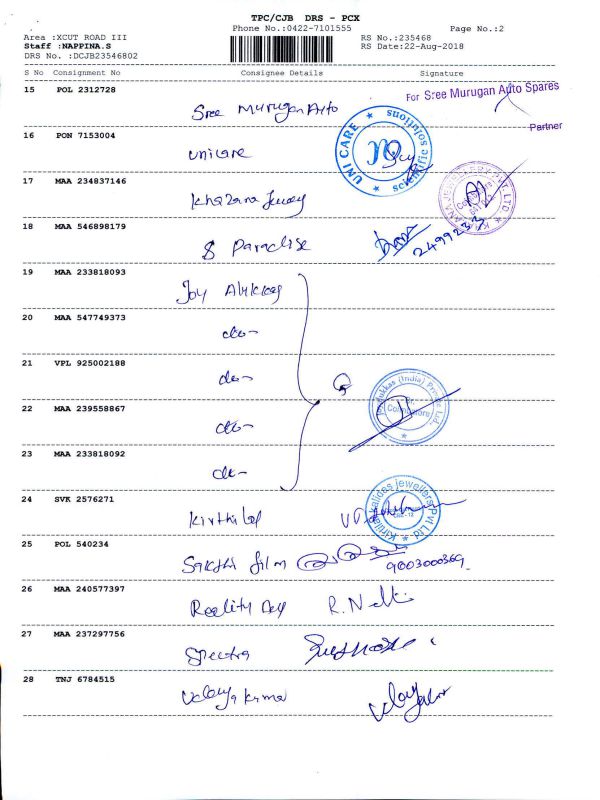 TPC/CJB DRS - PCX
Phone No.:0422-7101555 Page No.:2
Area :XCUT ROAD III RS No.:235468
Staff :NAPPINA.S RS Date:22-Aug-2018
DRS No. :DCJB23546802
S No Consignment No Consignee Details Signature
15 POL 2312728 For Sree Murugan Auto Spares
Sree Murugan Auto
Partner
16 PON 7153004
unicare UNI CARE scientific solutions
17 MAA 234837146
Khazana Jewey
18 MAA 546898179 2499233
8 Paradise
19 MAA 233818093
Joy Alukkas
20 MAA 547749373
do-
21 VPL 925002188
do-
22 MAA 239558867 Coimbatore
do-
23 MAA 233818092
do-
24 SVK 2576271
Kirthilal
25 POL 540234
Sakthi film 9003000369
26 MAA 240577397
Reality R.N
27 MAA 237297756
Spectra
28 TNJ 6784515